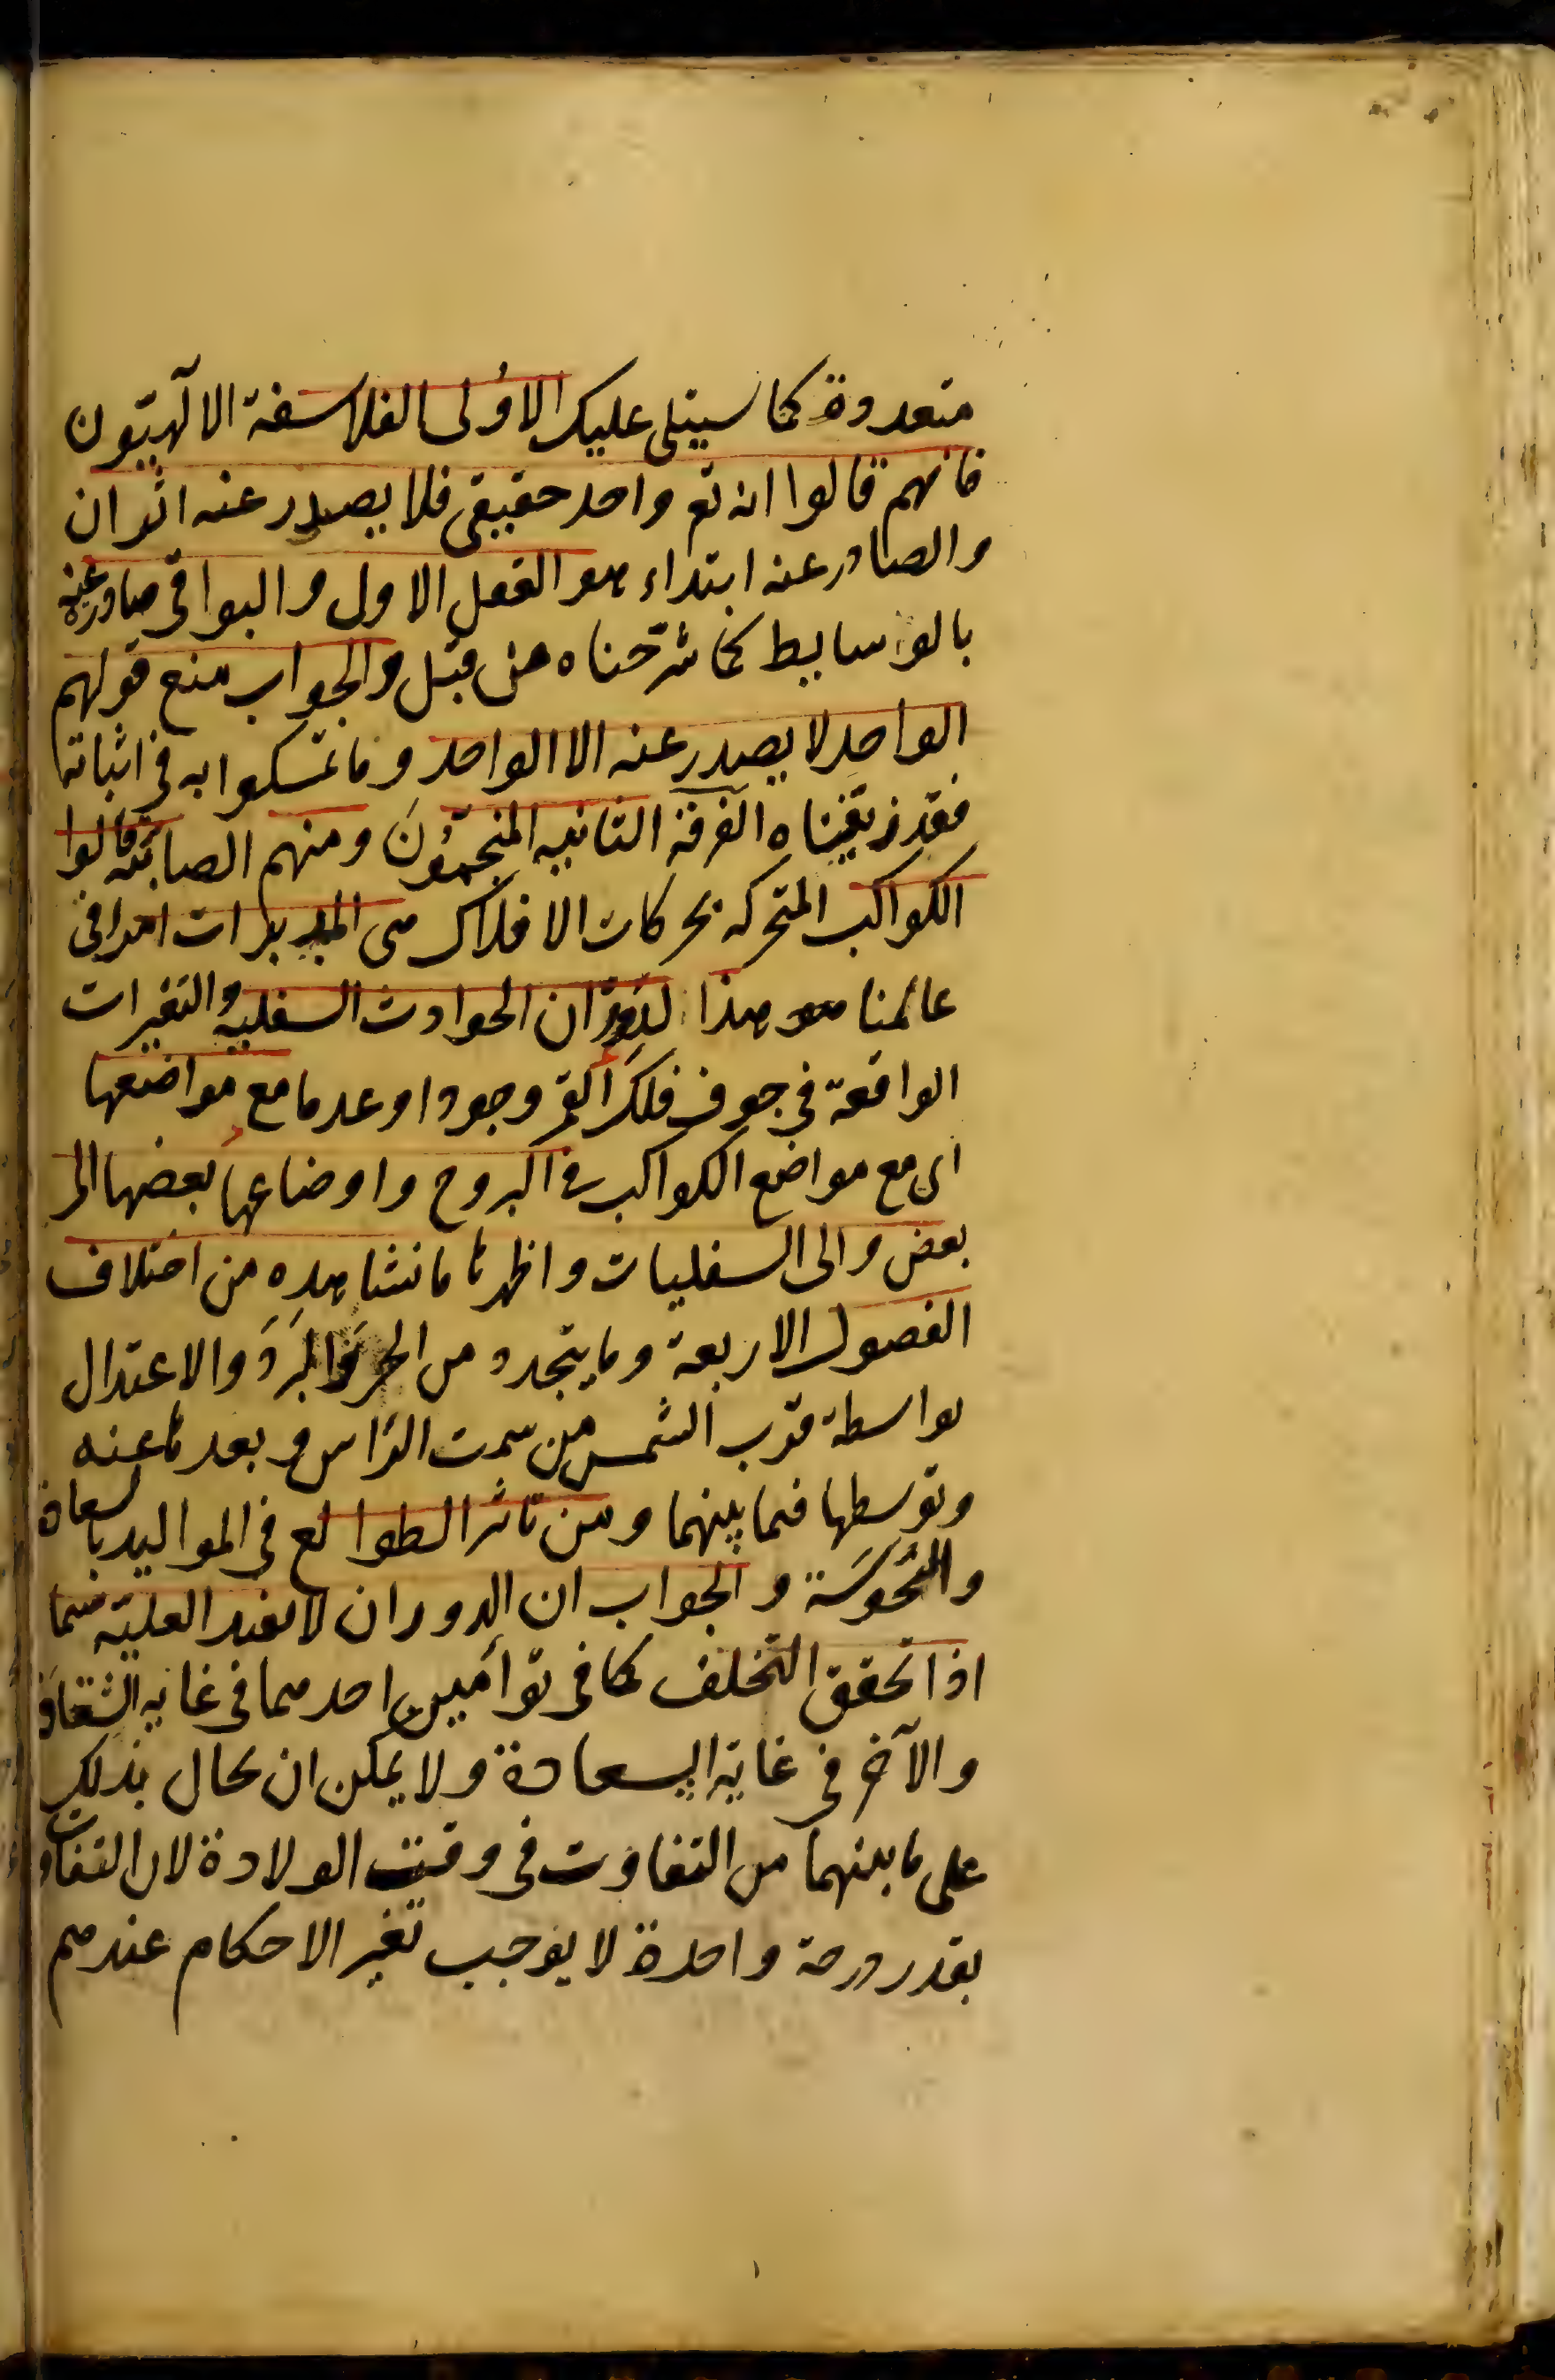 متعددة كما سيتلى عليك الاولى الفلاسفة الالهيون
فانهم قالوا انه تع واحد حقيقى فلا يصدر عنه اثران
والصادر عنه ابتداء هو العقل الاول والبواقى صادرة عنه
بالوسايط كما شرحناه من قبل والجواب منع قولهم
الواحد لا يصدر عنه الا الواحد وما تمسكوا به فى اثباته
فقد زيفناه الفرقة الثانيه المنجمون ومنهم الصابئة قالوا
الكواكب المتحركه بحركات الافلاك هى المدبرات امرا فى
عالمنا هو هذا لدوران الحوادث السفليه والتغيرات
الواقعة فى جوف فلك القمر وجودا وعدما مع مواضعها
اى مع مواضع الكواكب فى البروج واوضاعها بعضها الى
بعض والى السفليات واظهرها ما نشاهده من اختلاف
الفصول الاربعة وما يتجدد من الحر والبرد والاعتدال
بواسطة قرب الشمس من سمت الراس وبعدها عنه
وتوسطها فيما بينهما ومن تاثير الطوالع فى المواليد بالسعادة
والنحوسة والجواب ان الدوران لا يفيد العلية سيما
اذا تحقق التخلف كما فى توأمين احدهما فى غايه الشقاوة
والآخر فى غاية السعادة ولا يمكن ان يحال بذلك
على ما بينهما من التفاوت فى وقت الولادة لان التفاوت
بقدر درجة واحدة لا يوجب تغير الاحكام عندهم